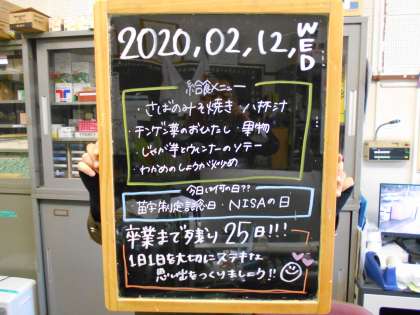 2020.02.12. WED
給食メニュー
・さばのみそ焼き・八杯汁
・チンゲン菜のおひたし・果物
・じゃが芋とウィンナーのソテー
・わかめのしょうが炒め
今日は何の日??
苗字制定記念日・NISAの日
卒業まで残り25日!!!
1日1日を大切にステキな
思い出をつくりましょーう!!